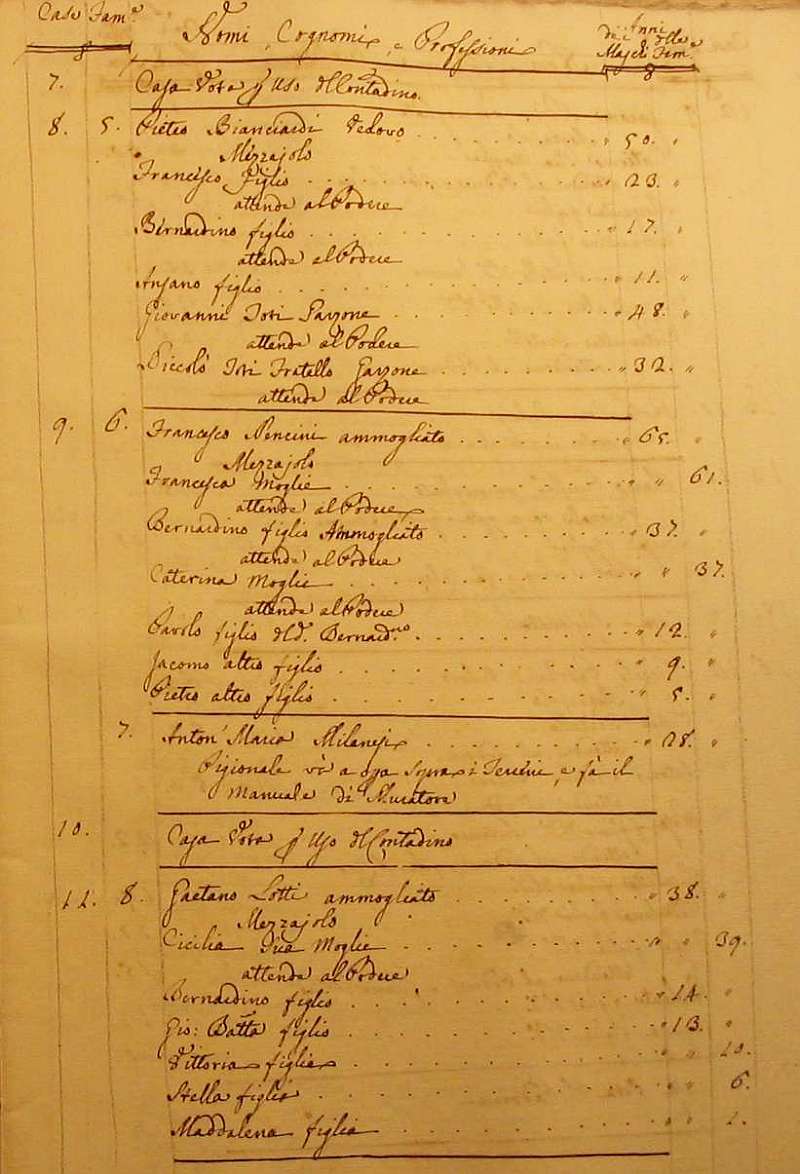 Case Fam.e Nomi, Cognomi, e Professioni Anni
de i delle
Maschi Fem.e
7. Casa Vota p Uso del Contadino.
8. 5. Pietro Bianciardi Vedovo 50. "
Mezzajolo
Francesco Figlio " 23. "
attende al Podere
Bernardino figlio " 17. "
attende al Podere
Ansano figlio " 11. "
Giovanni Tori Garzone " 48. "
attende al Podere
Niccolò Tori Fratello Garzone " 32. "
attende al Podere
9. 6. Francesco Nencini ammogliato " 65. "
Mezzajolo
Francesca Moglie " " 61.
attende al Podere
Bernardino figlio Ammogliato " 37. "
attende al Podere
Caterina Moglie " " 37.
attende al Podere
Pavolo figlio del d. Bernard.no " 12. "
Jacomo altro figlio " 9. "
Pietro altro figlio " 5. "
7. Anton Maria Milanesi " 28. "
Pigionale và a opra sopra i Terreni, e fà il
Manuale di Muratore
10. Casa Vota p Uso del Contadino
11. 8. Gaetano Lotti ammogliato " 38. "
Mezzajolo
Cicilia sua Moglie " " 39.
attende al Podere
Bernardino figlio " 14. "
Gio: Batta figlio " 13. "
Vittoria figlia " " 10.
Stella figlia " " 6.
Maddalena figlia " " 1.